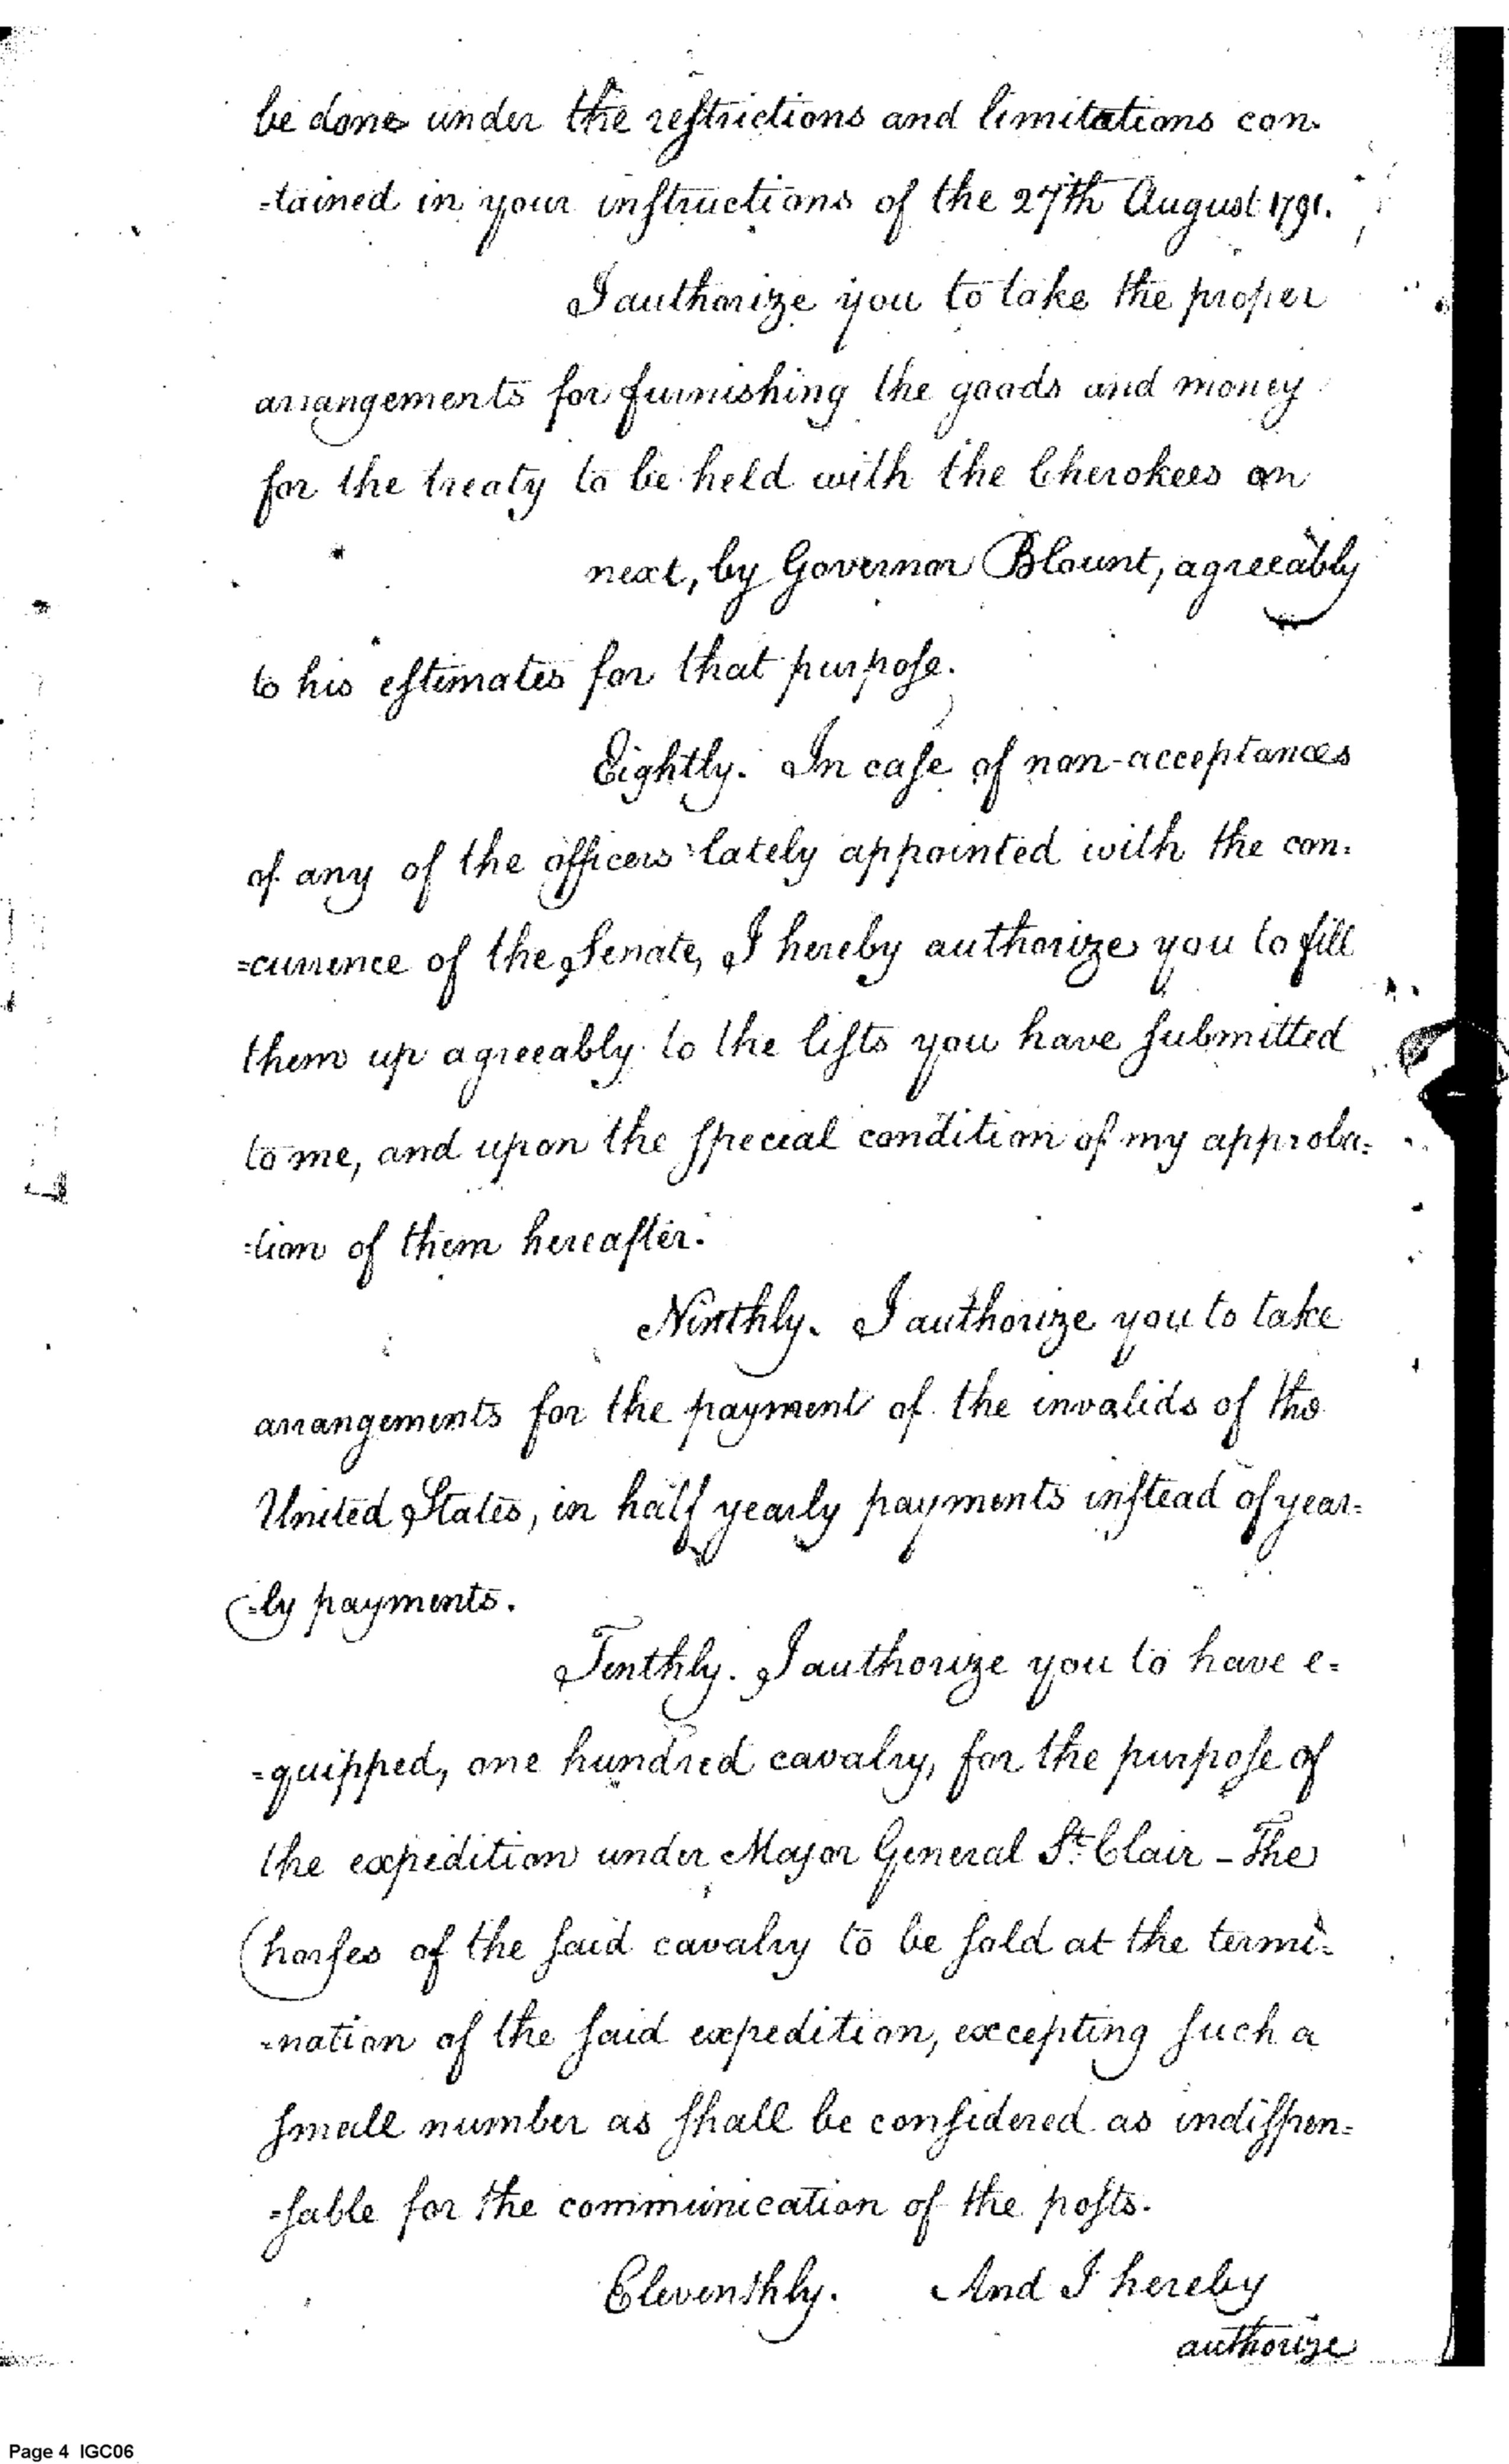 be done under the restrictions and limitations con-
=tained in your instructions of the 27th August 1791.
I authorize you to take the proper
arrangements for furnishing the goods and money
for the treaty to be held with the Cherokees on
next, by Governor Blount, agreeably
to his estimates for that purpose.
Eightly. In case of non-acceptances
of any of the officers lately appointed with the con-
=currence of the Senate, I hereby authorize you to fill
them up agreeably to the lists you have submitted
to me, and upon the special condition of my approba=
=tion of them hereafter.
Ninthly. I authorize you to take
arrangements for the payment of the invalids of the
United States, in half yearly payments instead of year=
=ly payments.
Tenthly. I authorize you to have e=
=quipped, one hundred cavalry, for the purpose of
the expedition under Major General St. Clair – The
horses of the said cavalry to be sold at the termi=
=nation of the said expedition, excepting such a
small number as shall be considered as indispen=
=sable for the communication of the posts.
Eleventhly. And I hereby
authorize
Page 4 IGC06